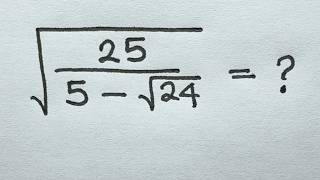 √(25 / (5 − √24)) = ?